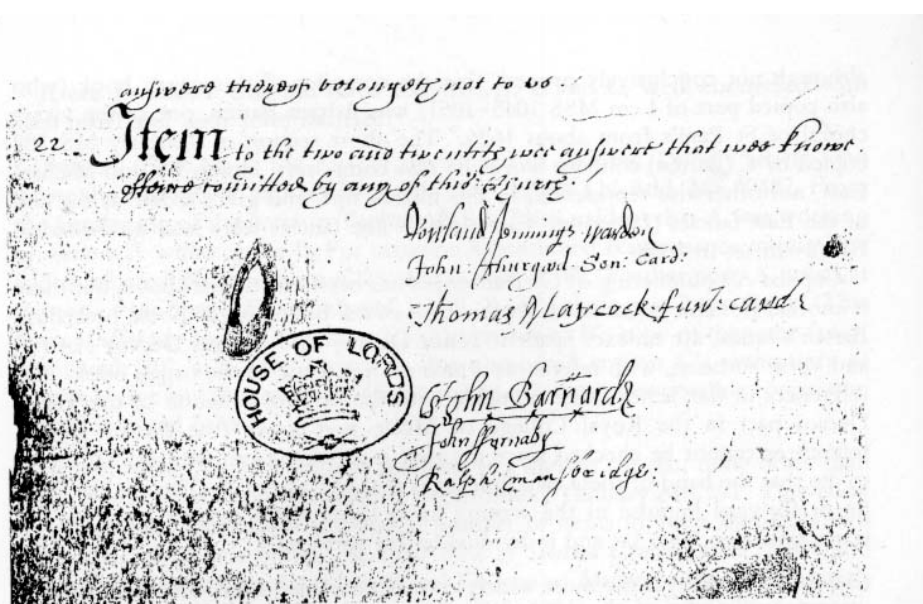 answere thereof belongeth not to us
22 . Item to the two and twentith wee answere that wee knowe
offence com̃itted by any of this
Rowland Jennings Warden
John: Thurgood Sen: Card:
Thomas Jun: card:
HOUSE OF LORDS
John Barnard
John Burnaby
Ralph mansbridge: